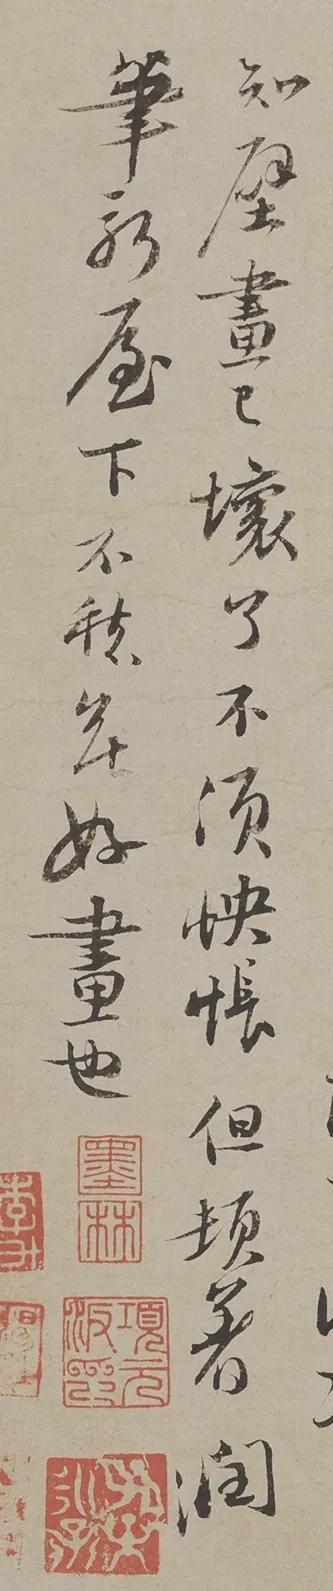 知壁畫已壞了不須怏悵但頓著潤
筆新屋下不愁無好畫也
墨林
項元汴印